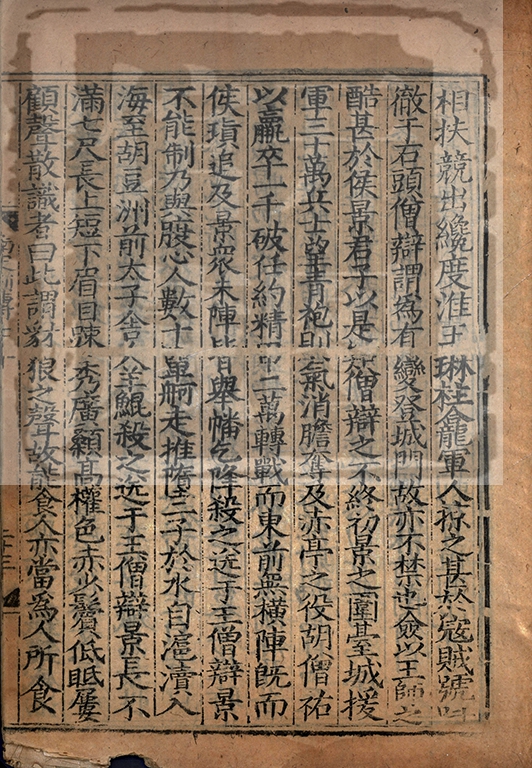 相扶競出纔度淮王琳杜龕軍人掠之甚於寇賊號叫
徹于石頭僧辯謂為有變登城問故亦不禁也僉以王師之
酷甚於侯景君子以是知僧辯之不終初景之圍臺城援
軍三十萬兵士望青袍則氣消膽奪及赤亭之役胡僧祐
以羸卒一千破任約精甲二萬轉戰而東前無橫陣既而
侯瑱追及景衆未陣皆舉幡乞降殺之送于王僧辯景
不能制乃與腹心人數十單舸走推墮二子於水自滬瀆入
海至胡豆洲前太子舍人羊鯤殺之送于王僧辯景長不
滿七尺長上短下眉目疎秀廣顙高權色赤少鬢低眡屢
顧聲散識者曰此謂豺狼之聲故能食人亦當為人所食